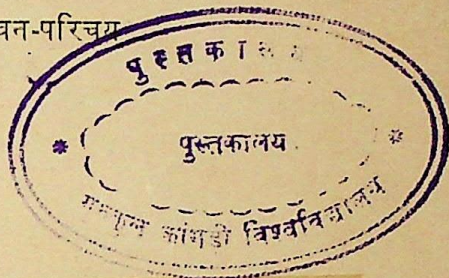 वन-परिचय
पुस्तकालय
पुस्तकालय
गुरुकुल कांगड़ी विश्वविद्यालय